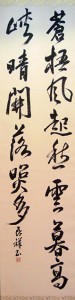 蒼梧風起愁雲暮高
峽晴開落照多